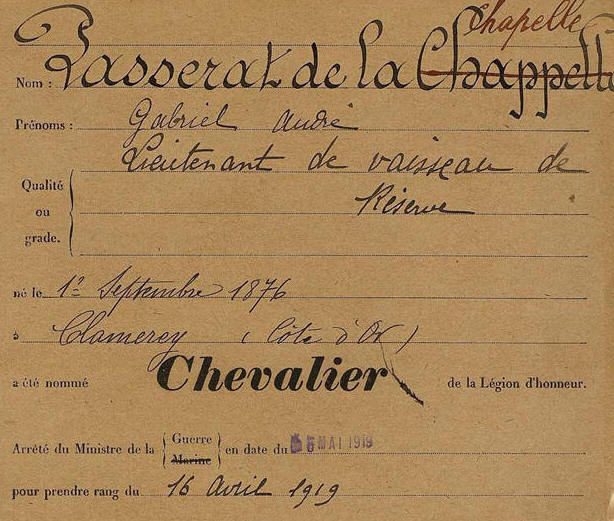 Chapelle
Nom : Passerat de la Chappelle
Prénoms : Gabriel André
Lieutenant de vaisseau de
Qualité
ou
Réserve
grade.
né le 1er Septembre 1876
à Clamerey (Côte d'Or)
a été nommé Chevalier de la Légion d'honneur.
Arrêté du Ministre de la Guerre Marine en date du MAI 1919
pour prendre rang du 16 Avril 1919